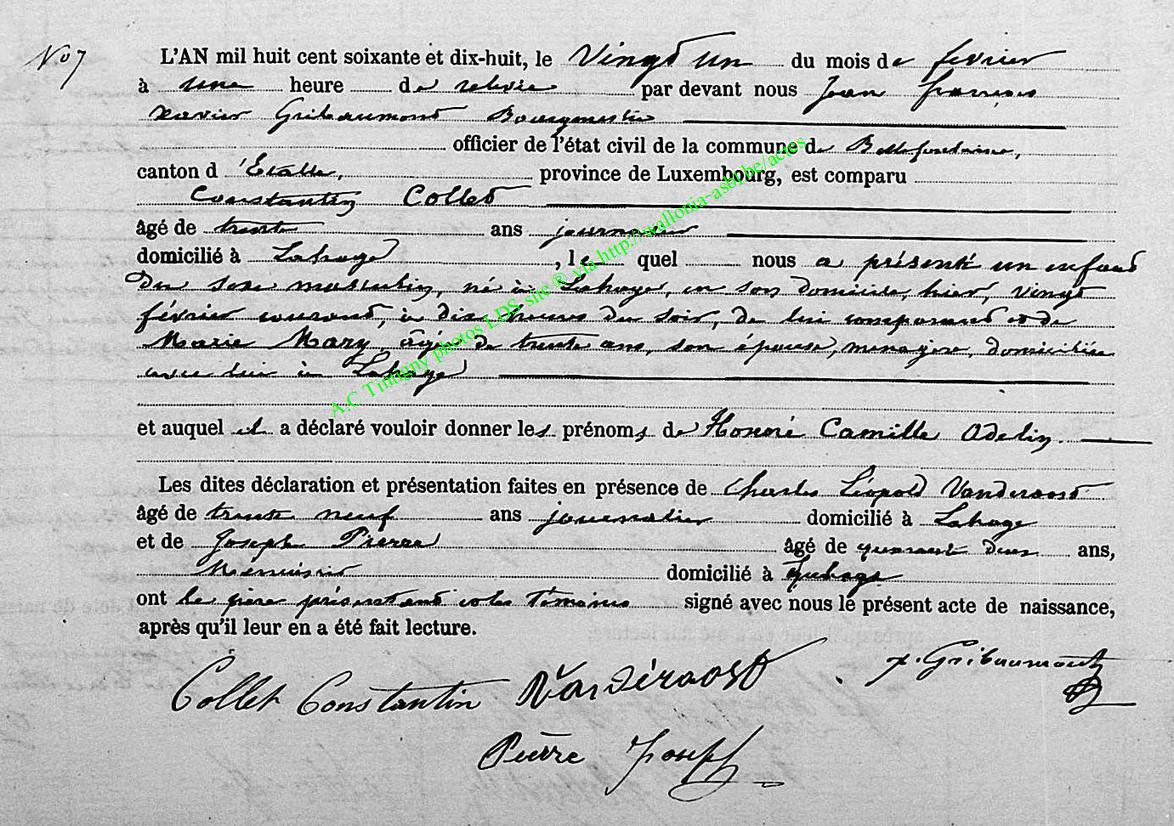 No 7
L'AN mil huit cent soixante et dix-huit, le Vingt un du mois de février
à une heure de relevée par devant nous Jean François
Xavier Gribaumont Bourgmestre
officier de l'état civil de la commune de Bellefontaine,
canton d'Etalle, province de Luxembourg, est comparu
Constantin Collet
âgé de trente ans journalier
domicilié à Lahage, lequel nous a présenté un enfant
du sexe masculin, né à Lahage, en son domicile, hier, vingt
février courant, à dix heures du soir, de lui comparant et de
Marie Mary, âgée de trente ans, son épouse, ménagère, domiciliée
avec lui à Lahage
et auquel il a déclaré vouloir donner les prénoms de Honoré Camille Adelin.
Les dites déclaration et présentation faites en présence de Charles Léopold Vanderaost
âgé de trente neuf ans journalier domicilié à Lahage
et de Joseph Pierre âgé de quarante deux ans,
Menuisier domicilié à Lahage
ont le père présentant et les témoins signé avec nous le présent acte de naissance,
après qu'il leur en a été fait lecture.
Collet Constantin Vanderaost x. Gribaumont
Pierre Joseph
A.C Tintigny photos LDS site ® via http://wallonia-asbl.be/actes